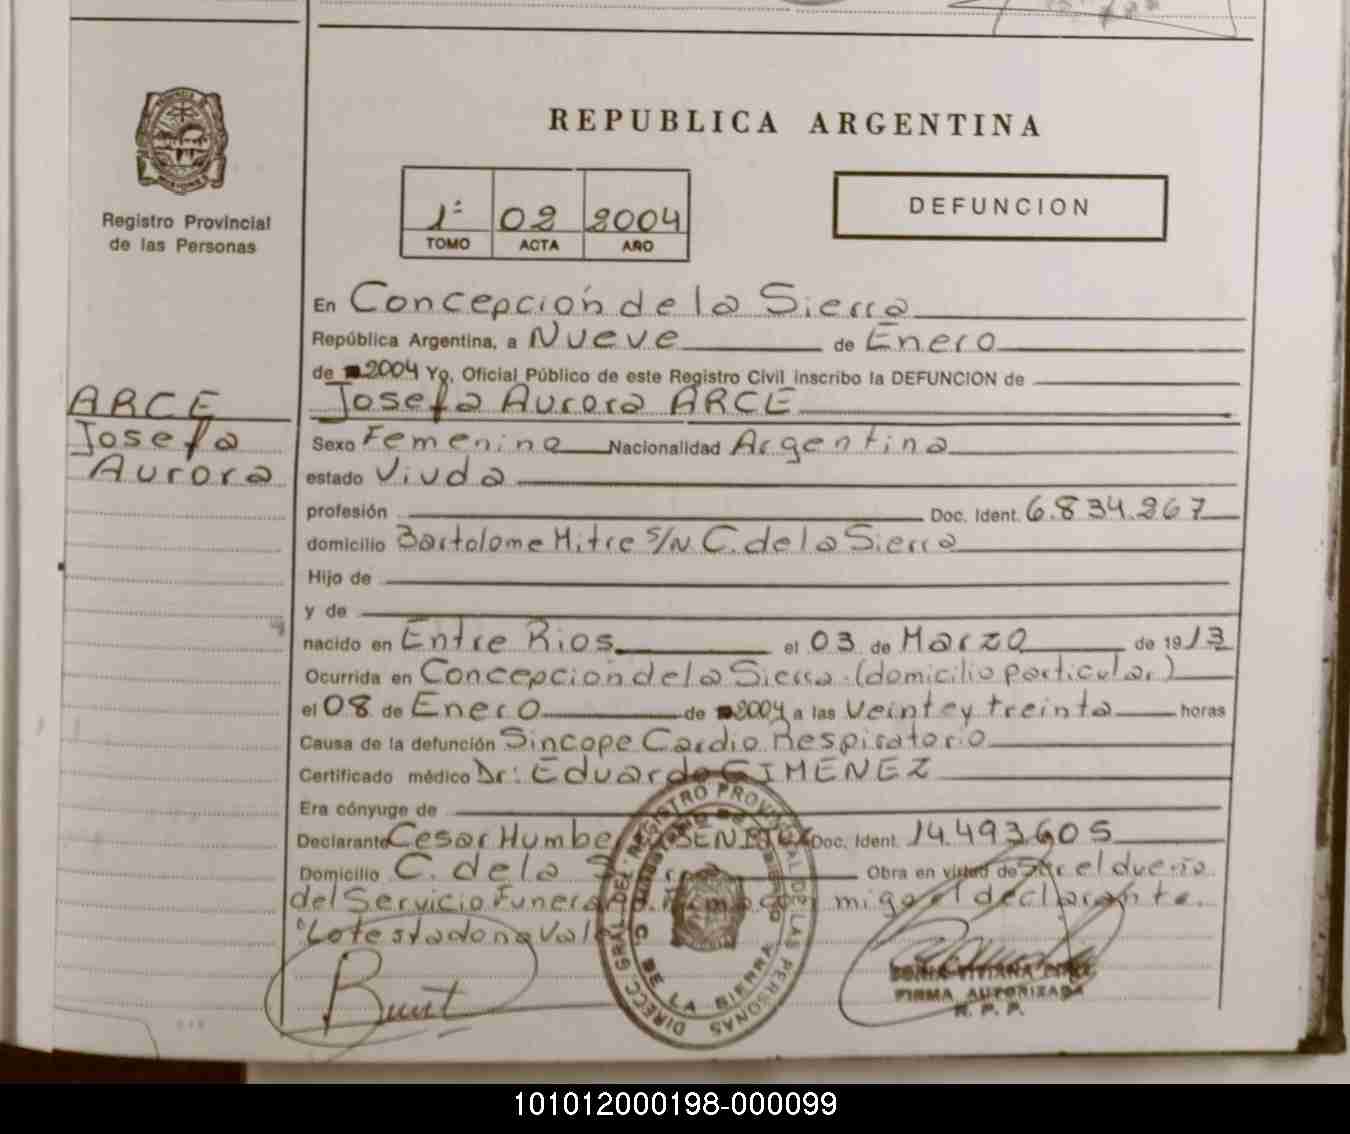 REPUBLICA ARGENTINA
Registro Provincial
de las Personas
1º 02 2004
TOMO ACTA AÑO
DEFUNCION
En Concepción de la Sierra
República Argentina, a Nueve de Enero
de 2004 Yo, Oficial Público de este Registro Civil inscribo la DEFUNCION de
ARCE
Josefa
Aurora
Josefa Aurora ARCE
Sexo Femenino Nacionalidad Argentina
estado Viuda
profesión Doc. Ident. 6.834.267
domicilio Bartolome Mitre s/N. C. de la Sierra
Hijo de
y de
nacido en Entre Rios el 03 de Marzo de 1913
Ocurrida en Concepcion de la Sierra (domicilio particular)
el 08 de Enero de 2004 a las veinte y treinta horas
Causa de la defunción Sincope Cardio Respiratorio
Certificado médico Dr: Eduardo GIMENEZ
Era cónyuge de
Declarante Cesar Doc. Ident. 14.493.605
Domicilio C. de la Obra en virtud de Ser el dueño
del Servicio el declarante.
Lo testado no Val
DIRECC. GRAL. DEL REGISTRO PROVINCIAL DE LAS PERSONAS
C. DE LA SIERRA
FIRMA AUTORIZADA
R. P. P.
101012000198-000099